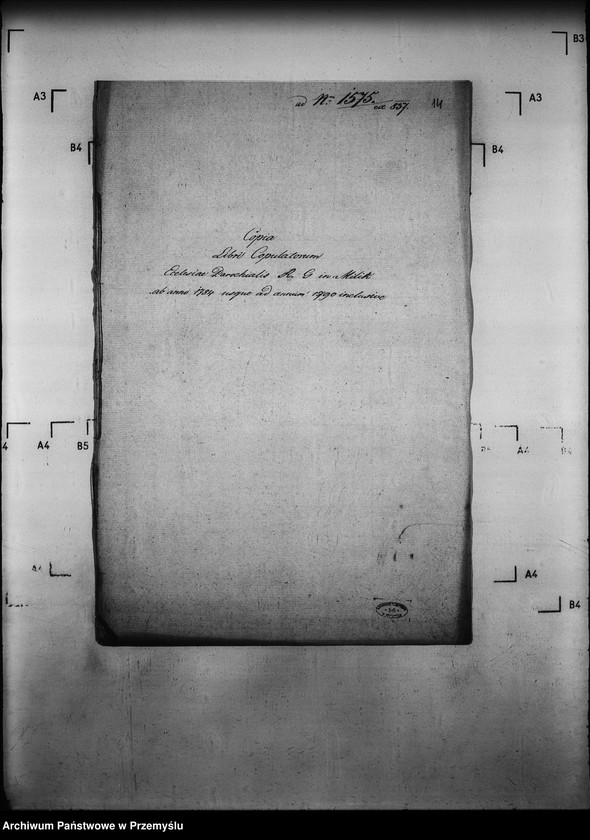 ad No 1575. ex 837. 14
Copia
Libri Copulatorum
Ecclesiae Parochialis R. G in Milik
ab anno 1784 usque ad annum 1790 inclusive
B3
A3 A3
B4 B4
4 A4 B5 A4 B4
A4 A4
B4
Archiwum Państwowe w Przemyślu